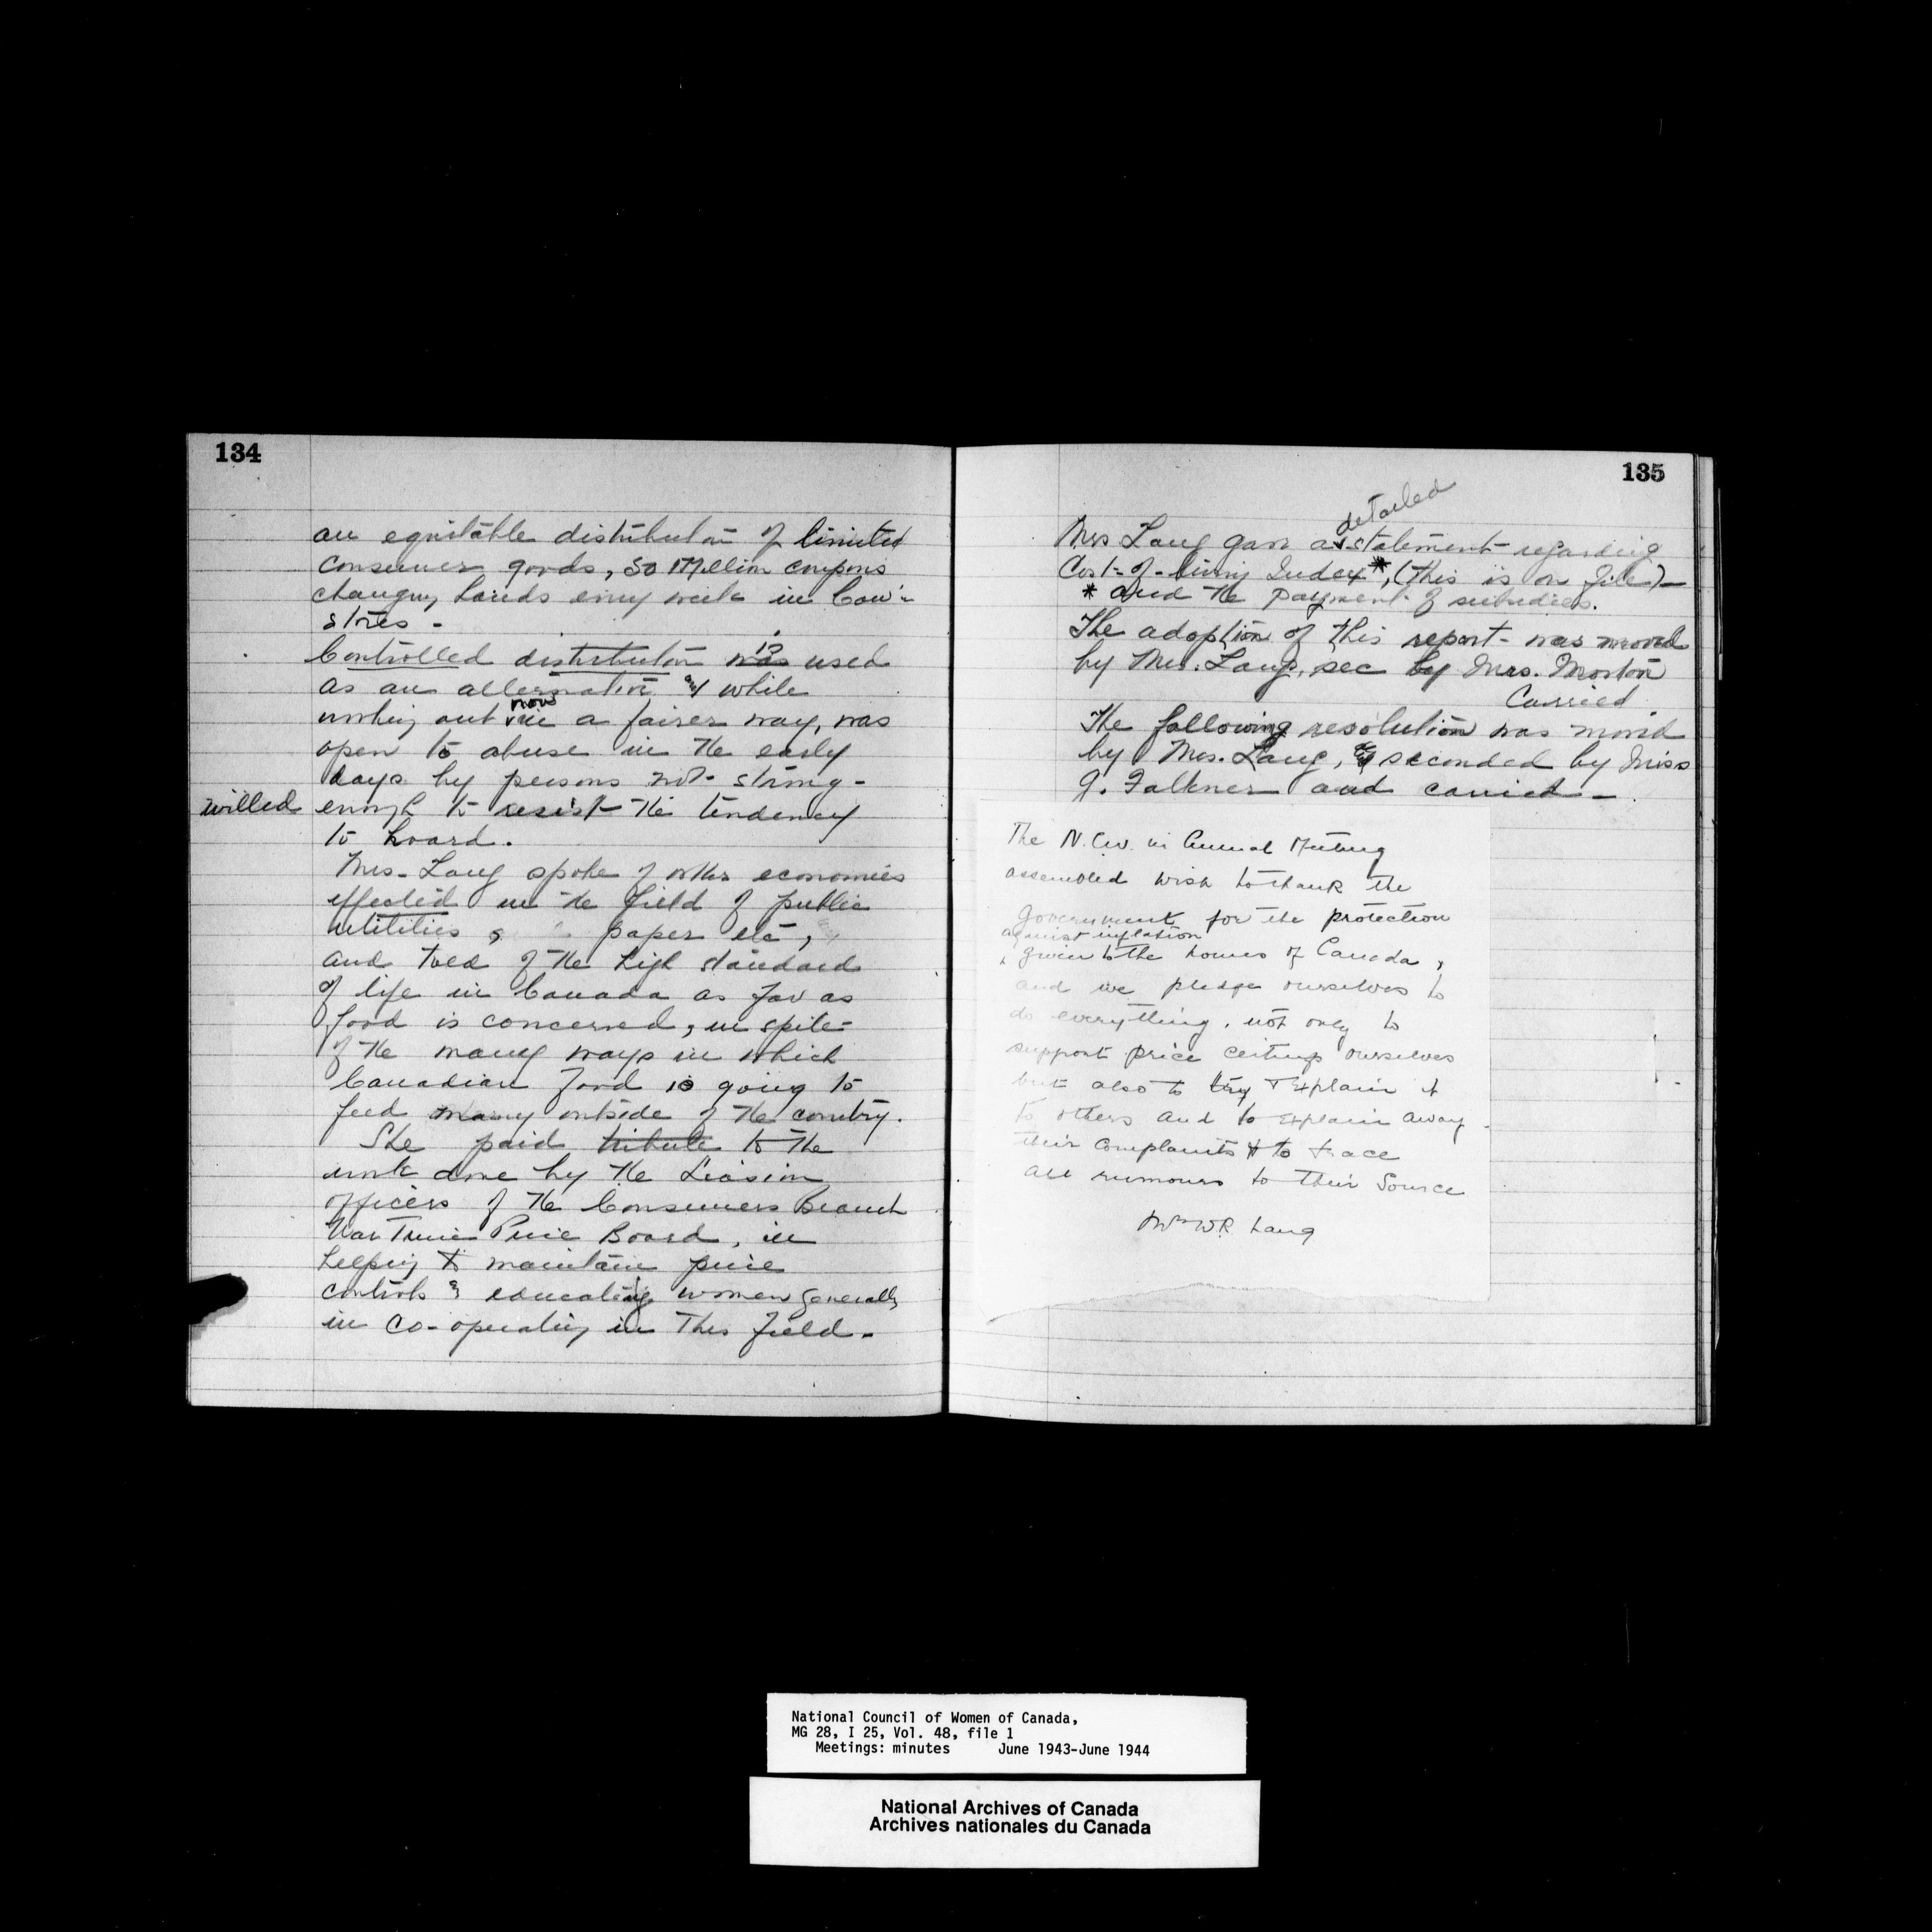 134
an equitable distribution of limited
Consumer goods, 50 Million coupons
changing hands every week in Can'n
stores -
Controlled distribution was is used
as an alternative and while
working out now in a fairer way, was
open to abuse in the early
days by persons not strong-
willed enough to resist the tendency
to hoard.
Mrs. Lang spoke of other economies
effected in the field of public
utilities, paper etc,
and told of the high standard
of life in Canada as far as
food is concerned, in spite
of the many ways in which
Canadian food is going to
feed many outside of the country.
She paid tribute to the
work done by the Liasion
officers of the Consumers Branch
War Time Price Board, in
helping to maintain price
controls & educating women generally
in co-operating in this field -
135
detailed
Mrs Lang gave a statement regarding
Cost-of-living Index*, (this is on file) -
* and the payment of subsidies.
The adoption of this report was moved
by Mrs. Lang, sec by Mrs. Morton
Carried.
The following resolution was moved
by Mrs. Lang, & seconded by Miss
J. Falkner and carried -
The N.C.W. in Annual Meeting
assembled wish to thank the
Government for the protection
against inflation
given to the homes of Canada,
and we pledge ourselves to
do everything, not only to
support price ceilings ourselves
but also to try & explain it
to others and to explain away
their complaints & to trace
all rumours to their source
Mrs W.R. Lang
National Council of Women of Canada,
MG 28, I 25, Vol. 48, file 1
Meetings: minutes June 1943-June 1944
National Archives of Canada
Archives nationales du Canada